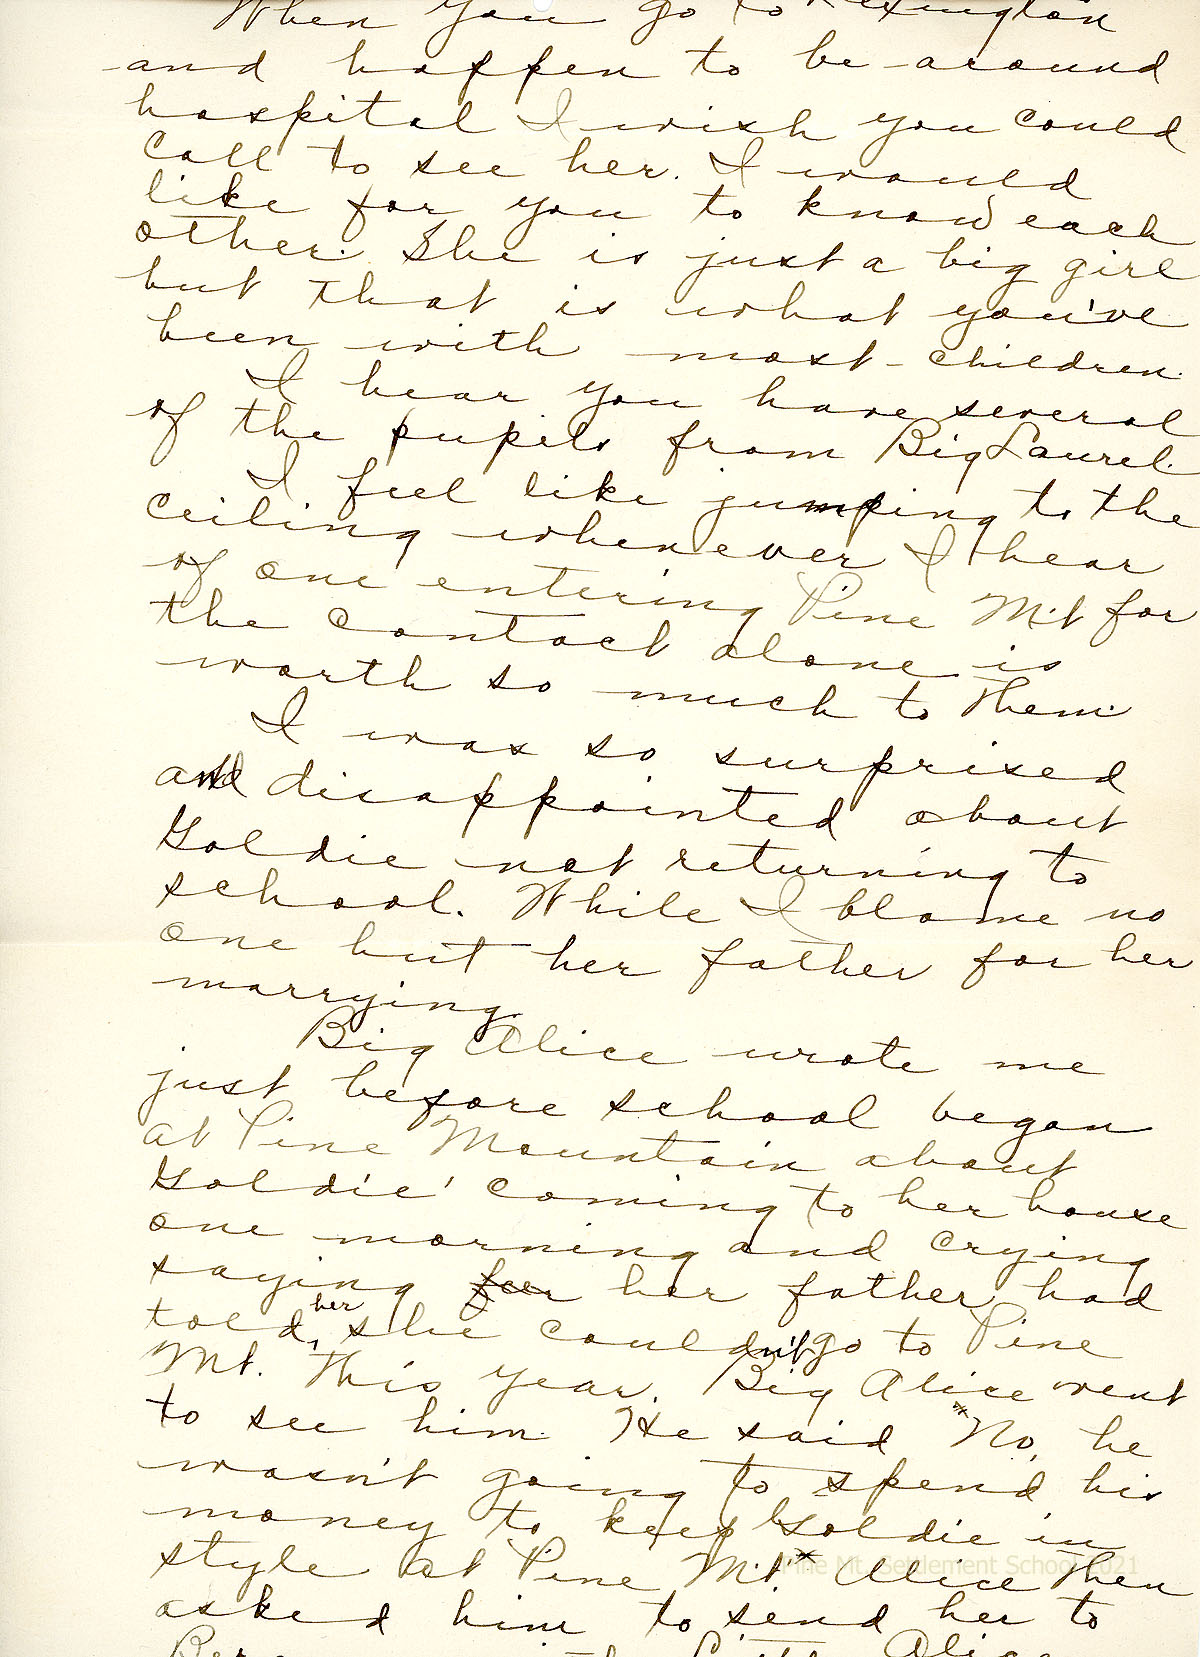 When you go to Lexington
and happen to be around
hospital I wish you could
call to see her. I would
like for you to know each
other. She is just a big girl
but that is what you've
been with most children.
I hear you have several
of the pupils from Big Laurel.
I feel like jumping to the
ceiling whenever I hear
of one entering Pine Mt for
the contact alone is
worth so much to them.
I was so surprised
and disappointed about
Goldie not returning to
school. While I blame no
one but her father for her
marrying.
Big Alice wrote me
just before school began
at Pine Mountain about
Goldie' coming to her house
one morning and crying
saying her father had
told her she couldn't go to Pine
Mt. this year. Big Alice went
to see him. He said "No, he
wasn't going to spend his
money to keep Goldie in
style at Pine Mt." Alice then
asked him to send her to
Alice
Pine Mt. Settlement School 2021